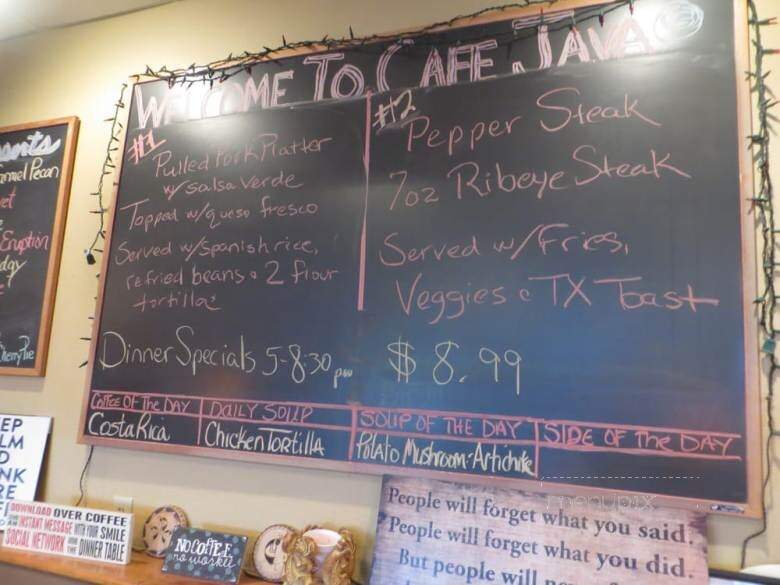 WELCOME TO CAFE JAVA
#1
Pulled Pork Platter
w/ salsa verde
Topped w/queso fresco
Served w/Spanish rice,
refried beans & 2 flour
tortillas
#2
Pepper Steak
7oz Ribeye Steak
Served w/Fries,
Veggies & TX Toast
Dinner Specials 5-8:30pm $8.99
Coffee Of The DAY
Costa Rica
DAILY SOUP
Chicken Tortilla
SOUP OF THE DAY
Potato Mushroom-Artichke
SIDE OF The DAY
Pecan
Eruption
DOWNLOAD OVER COFFEE
INSTANT MESSAGE WITH YOUR SMILE
SOCIAL NETWORK DINNER TABLE
NO COffEE
no workee
People will forget what you said.
People will forget what you did.
But people will
menupix